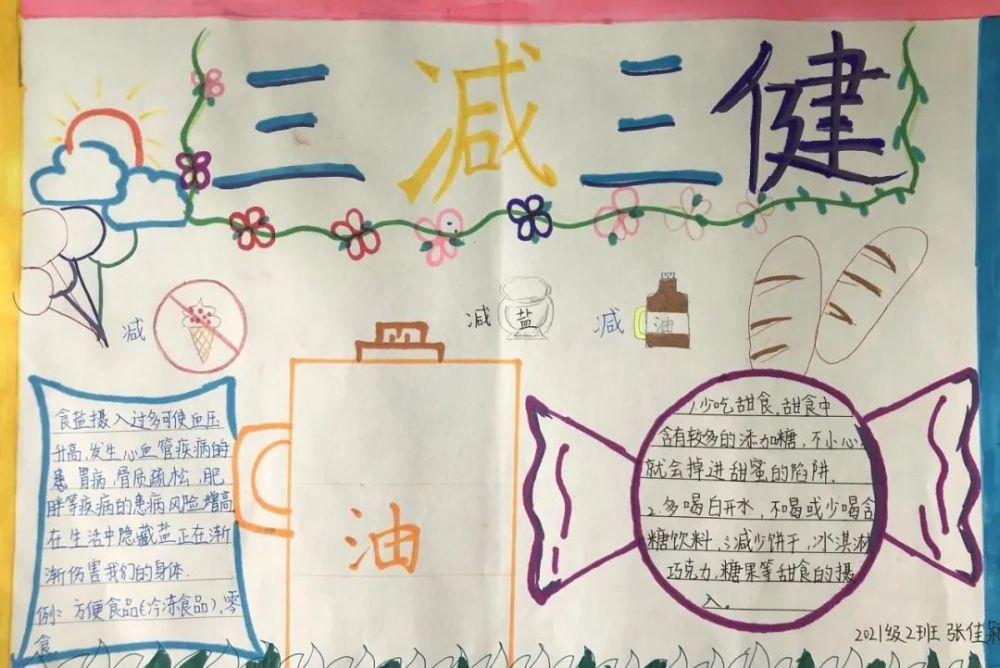 三减三健
减
减 盐
减 油
食盐摄入过多可使血压
升高,发生心血管疾病的
患 胃病,骨质疏松,肥
胖等疾病的患病风险增高
在生活中隐藏盐正在渐
渐伤害我们的身体.
例:方便食品(冷冻食品),零
食.
油
1.少吃甜食,甜食中
含有较多的添加糖,不小心
就会掉进甜蜜的陷阱.
2.多喝白开水,不喝或少喝含
糖饮料,3减少饼干,冰淇淋
巧克力,糖果等甜食的摄
入。
2021级2班 张佳颖